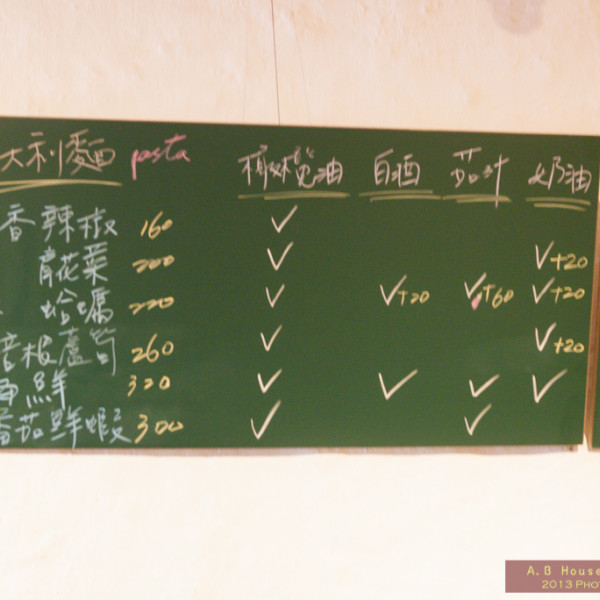 大利麵 pasta 橄欖油 白酒 茄汁 奶油
香辣椒 160 ✓
青花菜 200 ✓ ✓+20
蛤蠣 220 ✓ ✓+20 ✓+60 ✓+20
培根蘆筍 260 ✓ ✓+20
海鮮 320 ✓ ✓ ✓ ✓
番茄鮮蝦 300 ✓ ✓
A.B House
2013 PHO